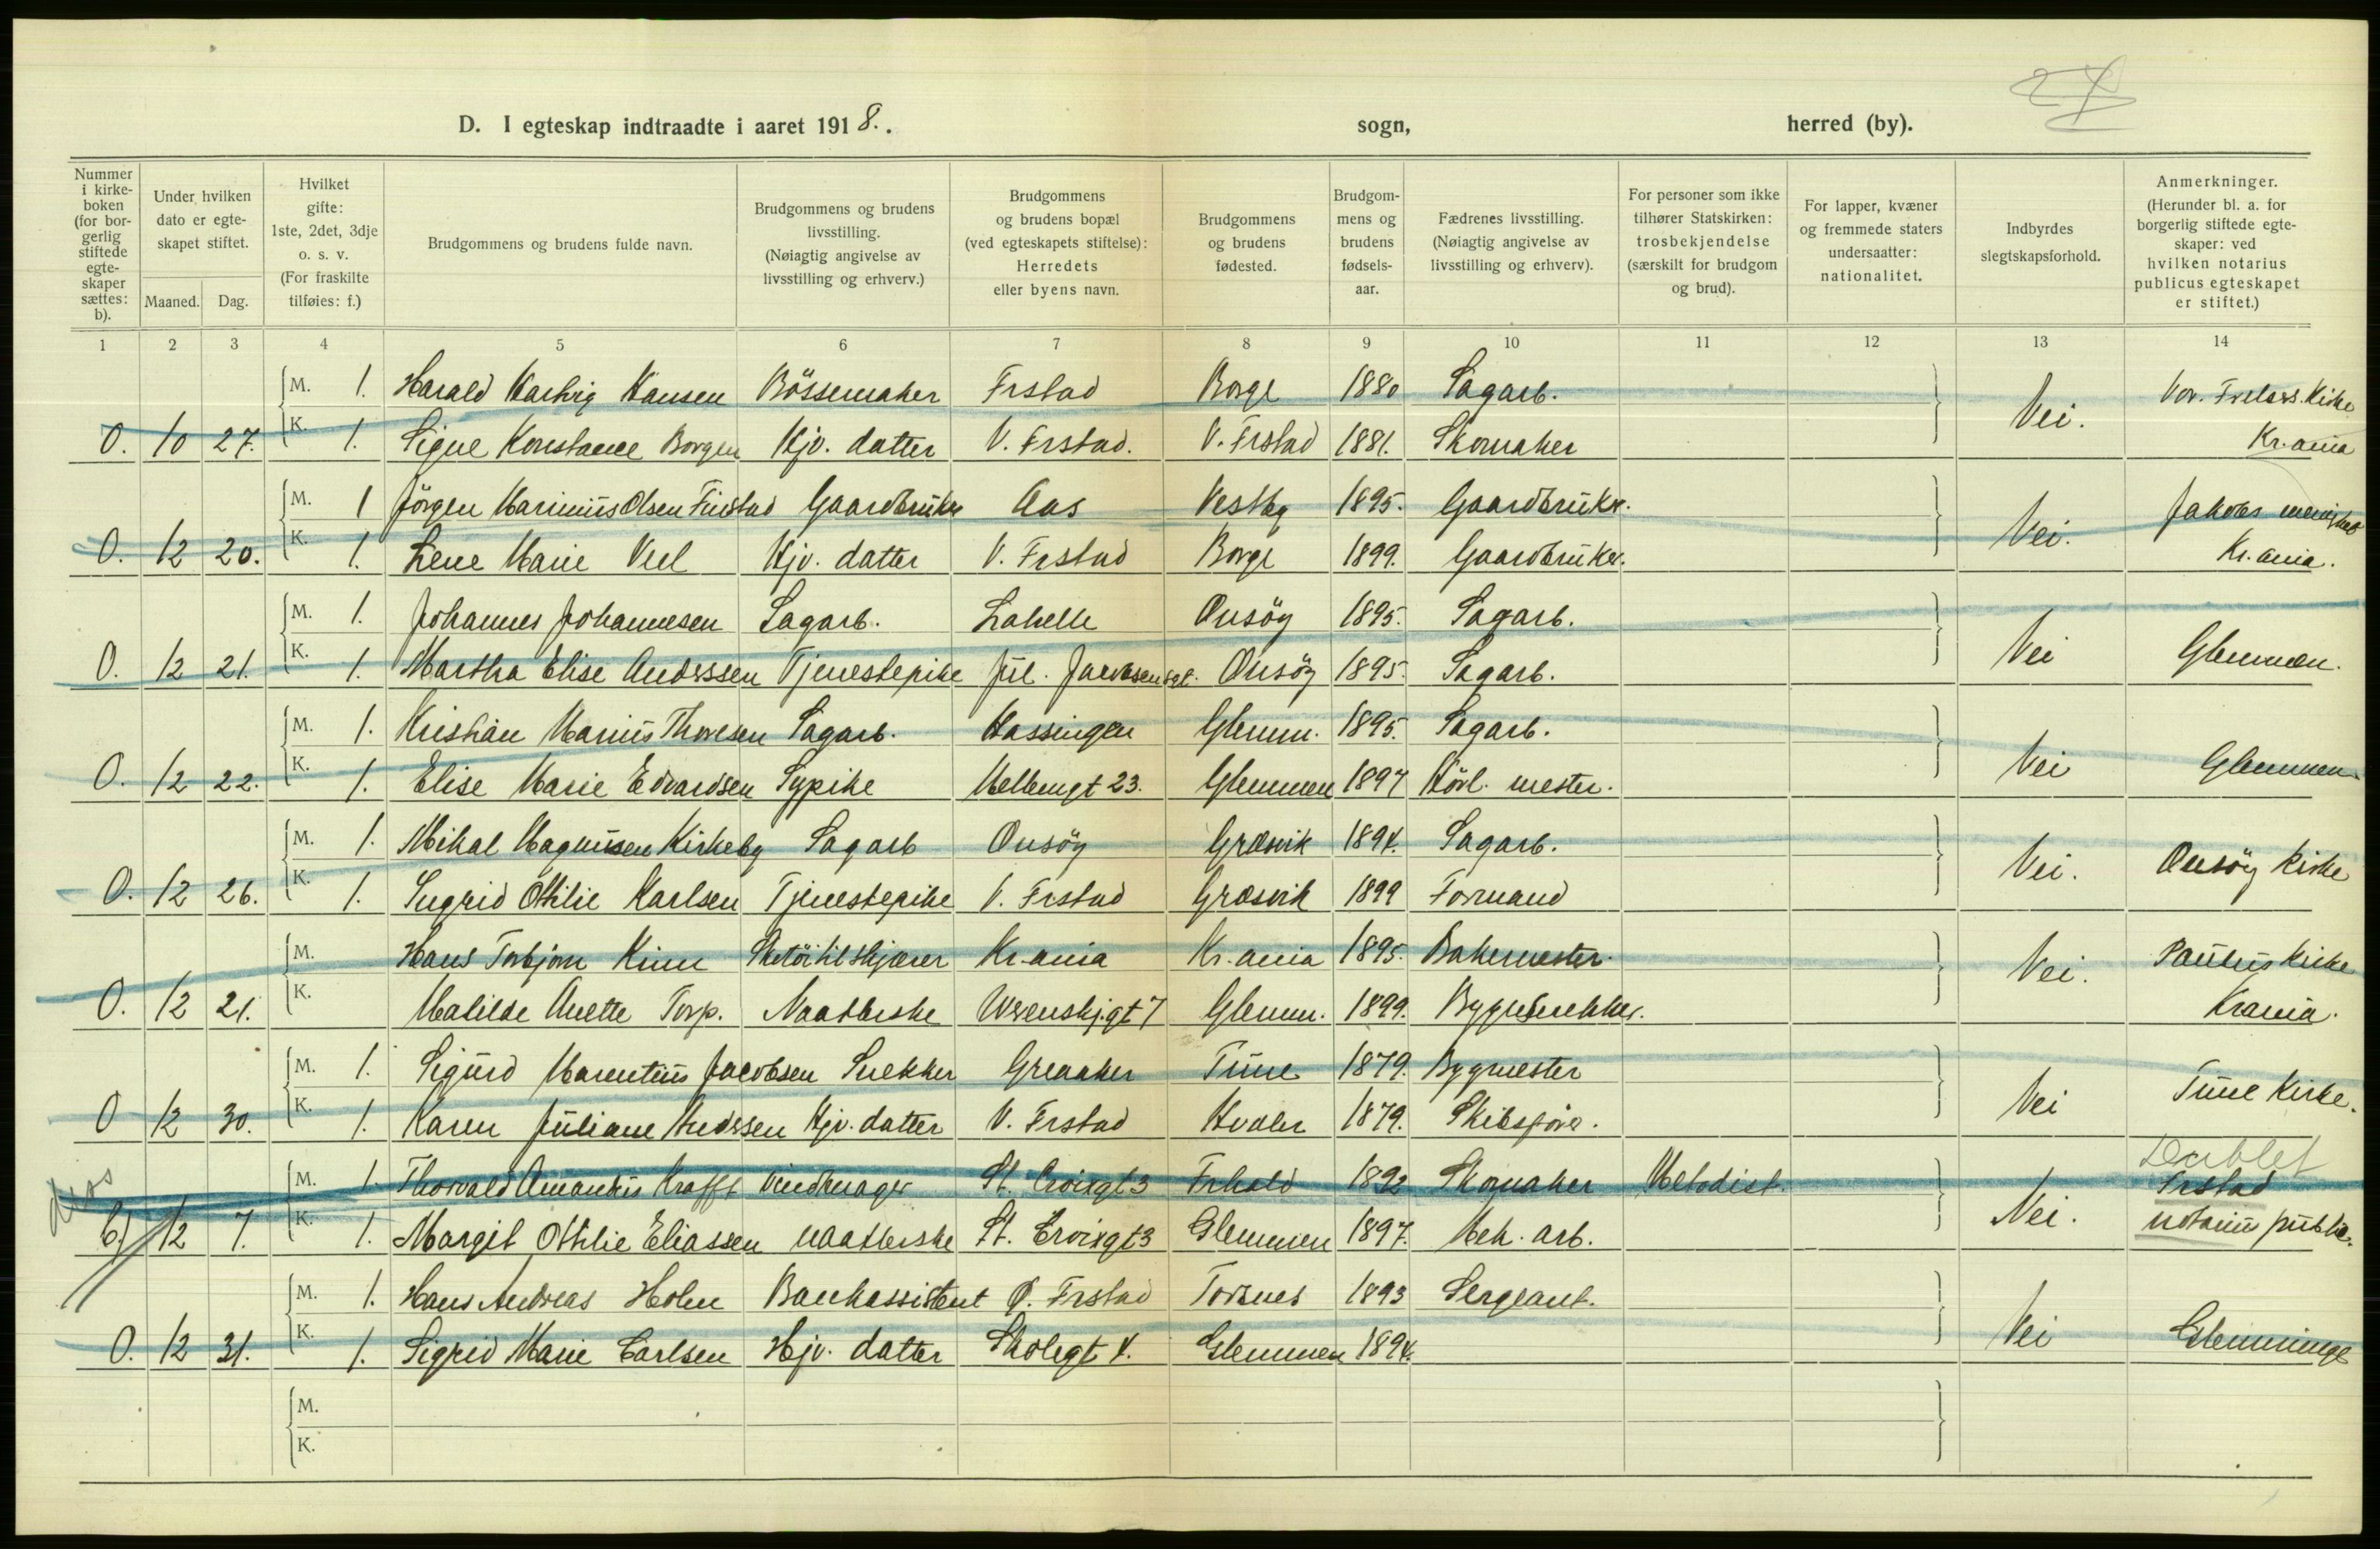 D. I egteskap indtraadte i aaret 1918. . sogn, herred (by).
Nummer i kirkeboken (for borgerlig stiftede egteskaper sættes: b).
Under hvilken dato er egteskapet stiftet.
Maaned. Dag.
Hvilket gifte: 1ste, 2det, 3dje o. s. v. (For fraskilte tilføies: f.)
Brudgommens og brudens fulde navn.
Brudgommens og brudens livsstilling. (Nøiagtig angivelse av livsstilling og erhverv.)
Brudgommens og brudens bopæl (ved egteskapets stiftelse): Herredets eller byens navn.
Brudgommens og brudens fødested.
Brudgommens og brudens fødselsaar.
Fædrenes livsstilling. (Nøiagtig angivelse av livsstilling og erhverv).
For personer som ikke tilhører Statskirken: trosbekjendelse (særskilt for brudgom og brud).
For lapper, kvæner og fremmede staters undersaatter: nationalitet.
Indbyrdes slegtskapsforhold.
Anmerkninger. (Herunder bl. a. for borgerlig stiftede egteskaper: ved hvilken notarius publicus egteskapet er stiftet.)
1 2 3 4 5 6 7 8 9 10 11 12 13 14
M. 1. Harald Hartvig Hansen Bössemaker Frstad Borge 1880 Sagarb. Vor. Frelsers. Kirke
O. 10 27. K. 1. Signe Konstance Borgen Hjv. datter V. Frstad. V. Frstad 1881. Skomaker Nei. Kr.ania
M. 1 Jörgen Marinius Olsen Finstad Gaardbruker Aas Vestby 1895. Gaardbruker. Jakobs menighet
O. 12 20. K. 1. Lene Marie Veel Hjv. datter V. Frstad Borge 1899. Gaardbruker. Nei. Kr.ania.
M. 1. Johannes Johannesen Sagarb. Lahelle Onsöy 1895. Sagarb.
O. 12 21. K. 1. Martha Elise Anderssen Tjenestepike Jul. Jacobsensgt. Onsöy 1895. Sagarb. Nei Glemmen.
M. 1. Kristian Marius Thoresen Sagarb. Hassingen Glemm. 1895. Sagarb.
O. 12 22. K. 1. Elise Marie Edvardsen Sypike Mellemgt 23. Glemmen 1897 Hövl. mester. Nei Glemmen.
M. 1. Mikal Magnusen Kirkeby Sagarb Onsöy Græsvik 1894. Sagarb.
O. 12 26. K. 1. Sugrid Othilie Karlsen Tjenestepike V. Frstad Græsvik 1899 Formand Nei. Onsöy Kirke
M. Hans Torbjørn Kinn Skotöitilskjærer Kr.ania Kr.ania 1895. Bakermester. Paulus Kirke
O. 12 21. K. Matilde Anette Torp. Naatlerske Werenskj.gt 7 Glemm. 1899. Bygsnekker. Nei. Krania.
M. 1. Sigurd Marentius Jacobsen Snekker Greaaker Tune 1879. Bygmester
O 12 30. K. 1. Karen Juliane Andersen Hjv. datter V. Frstad Hvaler 1879. Skibsfører. Nei Tune Kirke.
Dublet
M. 1. Thorvald Amandus Krafft Vindmager St. Croixgt 3 Frhald 1892 Skomaker Metodist. Frstad
b) 12 7. K. 1. Margit Othilie Eliassen naatlerske St. Croixgt 3 Glemmen 1897. Mek. arb. Nei. notariu public.
M. 1. Hans Andreas Holm Bankassistent Ø. Frstad Torsnes 1893 Sergeant.
O. 12 31. K. 1. Sigrid Marie Carlsen Hjv. datter Skolegt 4. Glemmen 1894. Nei Glemminge
M.
K.